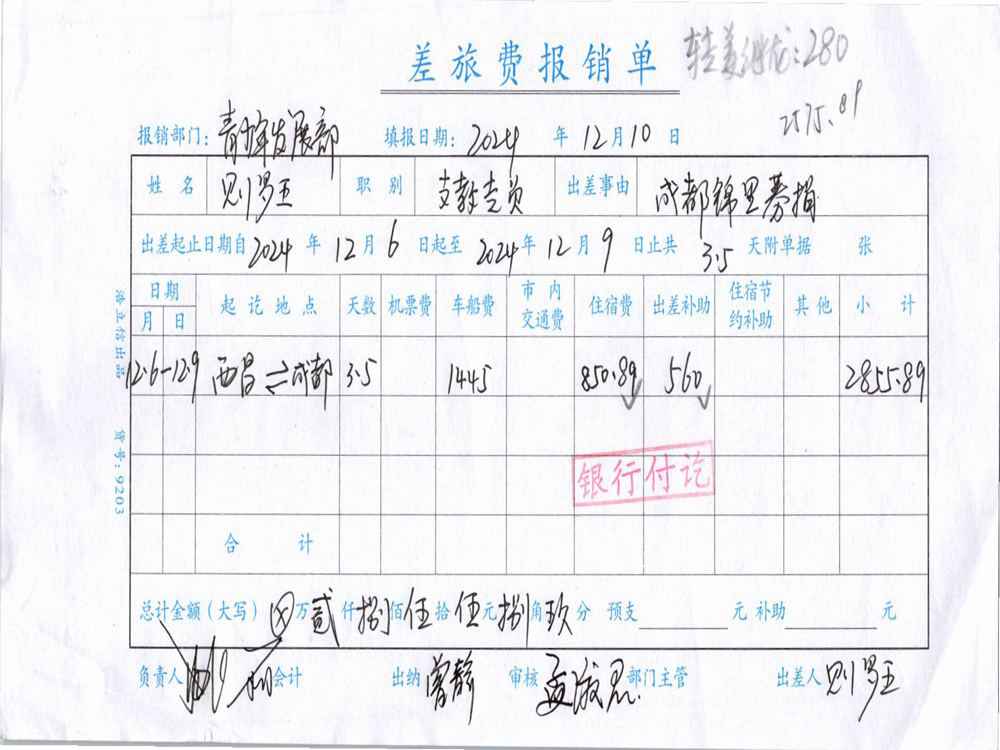 差旅费报销单
:280
2575.89
报销部门: 青少年发展部 填报日期: 2024 年 12月10日
姓名 则罗王 职别 支教专员 出差事由 成都锦里募捐
出差起止日期自2024年12月6日起至2024年12月9日止共3.5天附单据 张
日期 起讫地点 天数 机票费 车船费 市内交通费 住宿费 出差补助 住宿节约补助 其他 小计
月 日
12.6-12.9 西昌⇌成都 3.5 1445 850.89 560 2855.89
银行付讫
合计
总计金额(大写) ⊗万贰仟捌佰伍拾伍元捌角玖分 预支 元 补助 元
负责人 会计 出纳 曾静 审核 部门主管 出差人 则罗王
货号:9203